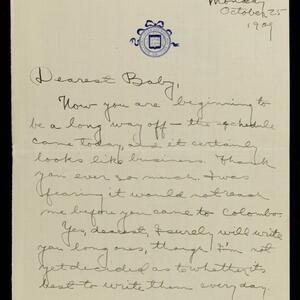 Monday
October 25
1909
Dearest Baby,
Now you are beginning to
be a long way off – the schedule
came today, and it certainly
looks like business. Thank
you ever so much. I was
fearing it would not reach
me before you came to Colombo.
Yes, dearest, I surely will write
you long ones, though I'm not
yet decided as to whether it's
best to write them every day.